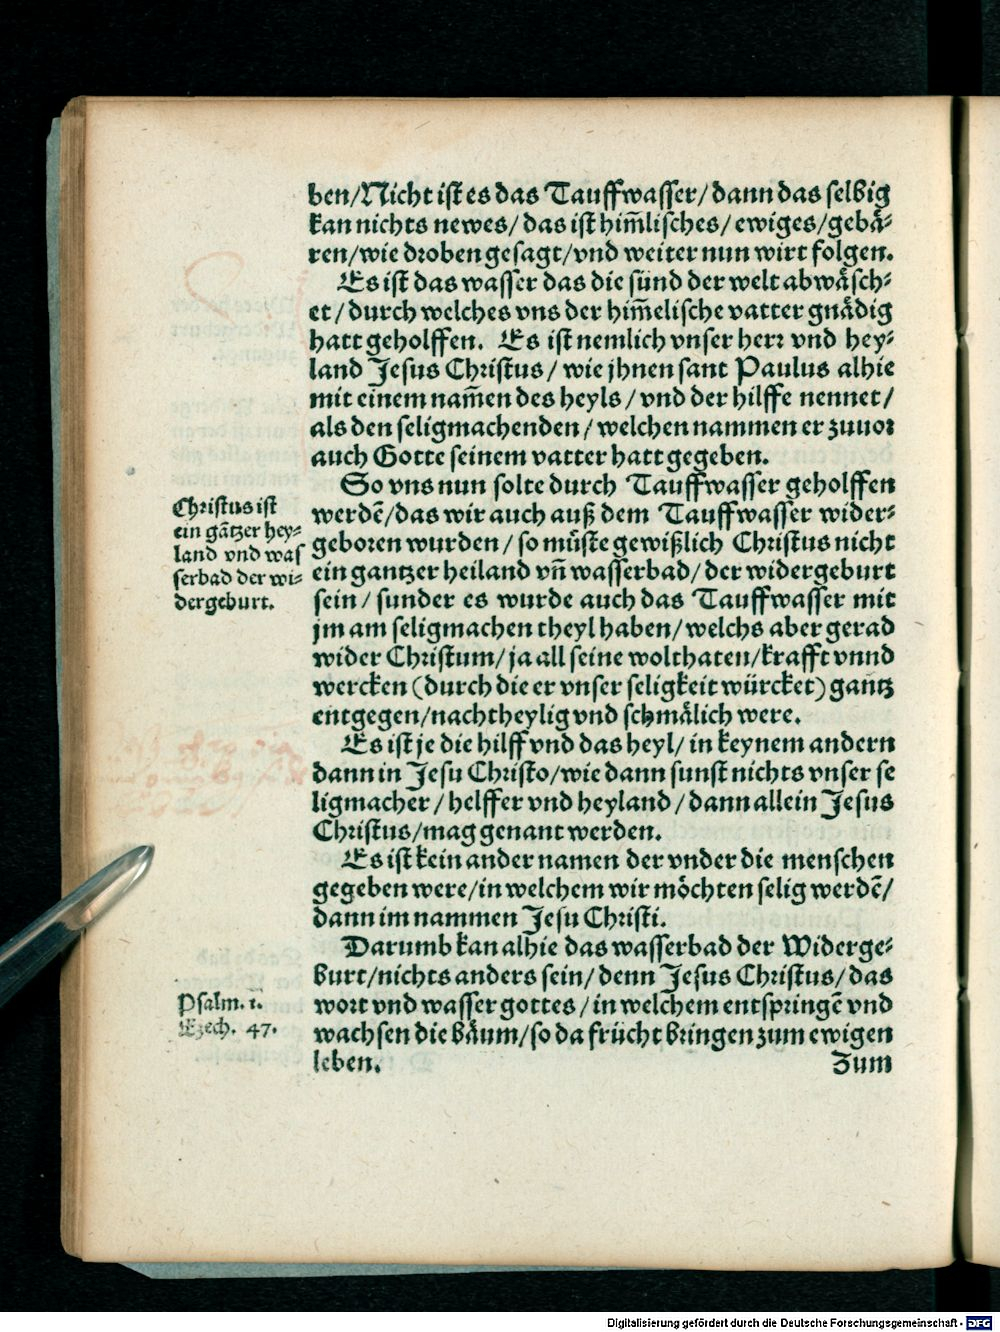 ben/Nicht ist es das Tauffwasser/dann das selbig
kan nichts newes/das ist him̃lisches/ewiges/gebä-
ren/wie droben gesagt/vnd weiter nun wirt folgen.
Es ist das wasser das die sünd der welt abwäsch-
et/durch welches vns der him̃elische vatter gnädig
hatt geholffen. Es ist nemlich vnser herr vnd hey-
land Jesus Christus/wie jhnen sant Paulus alhie
mit einem nam̃en des heyls/vnd der hilffe nennet/
als den seligmachenden/welchen nammen er zuuor
auch Gotte seinem vatter hatt gegeben.
So vns nun solte durch Tauffwasser geholffen
werdẽ/das wir auch auß dem Tauffwasser wider-
geboren wurden/so müste gewißlich Christus nicht
ein gantzer heiland vñ wasserbad/der widergeburt
sein/sunder es wurde auch das Tauffwasser mit
jm am seligmachen theyl haben/welchs aber gerad
wider Christum/ja all seine wolthaten/krafft vnnd
wercken (durch die er vnser seligkeit würcket) gantz
entgegen/nachtheylig vnd schmälich were.
Es ist je die hilff vnd das heyl/in keynem andern
dann in Jesu Christo/wie dann sunst nichts vnser se
ligmacher/helffer vnd heyland/dann allein Jesus
Christus/mag genant werden.
Es ist kein ander namen der vnder die menschen
gegeben were/in welchem wir möchten selig werdẽ/
dann im nammen Jesu Christi.
Darumb kan alhie das wasserbad der Widerge-
burt/nichts anders sein/denn Jesus Christus/das
wort vnd wasser gottes/in welchem entspringẽ vnd
wachsen die bäum/so da frücht bringen zum ewigen
leben.
Zum
Christus ist
ein gãtzer hey-
land vnd was
serbad der wi-
dergeburt.
Psalm. 1.
Ezech. 47.
Digitalisierung gefördert durch die Deutsche Forschungsgemeinschaft - DFG